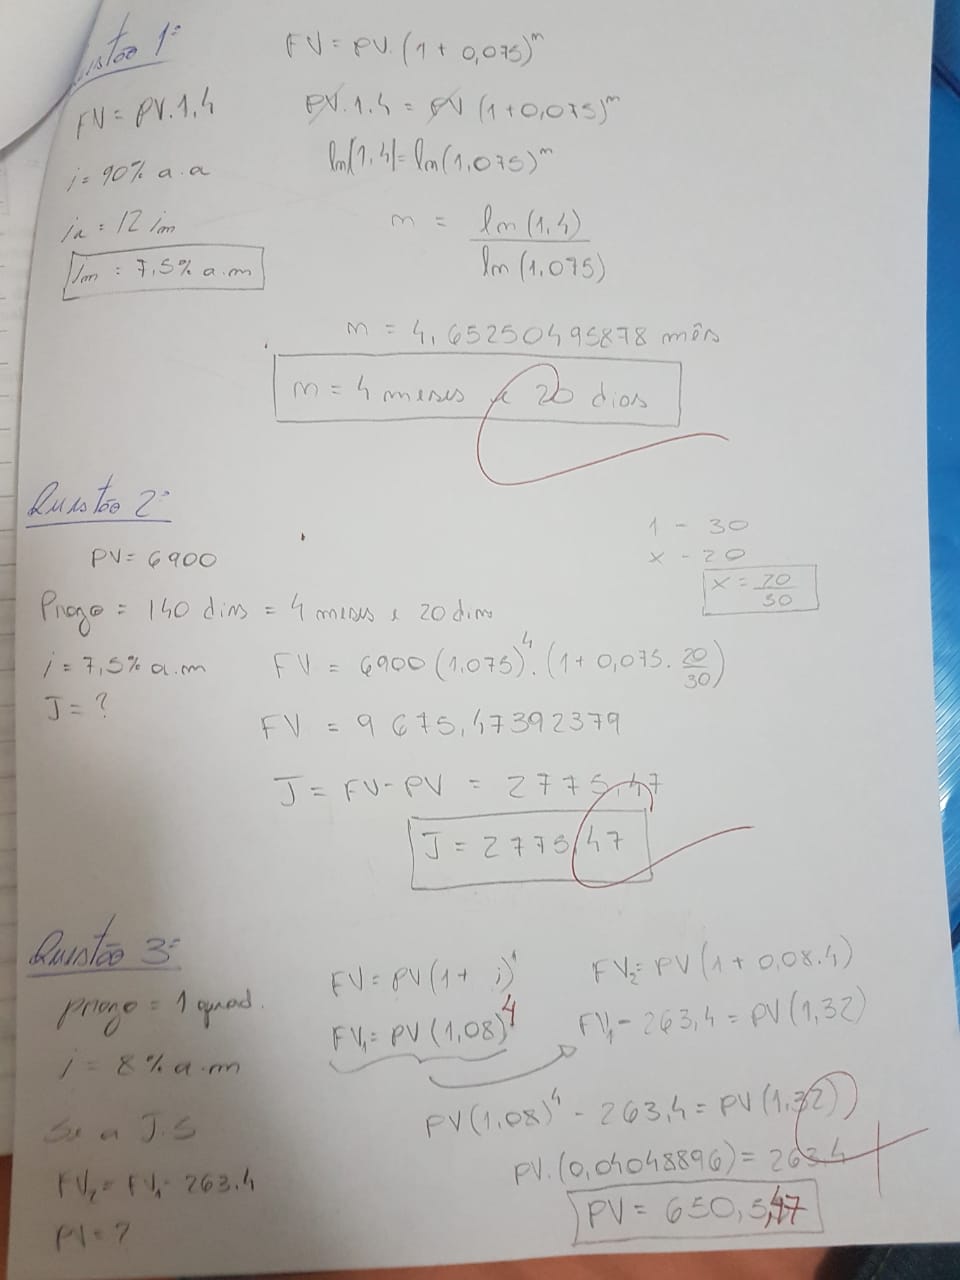 Questão 1ª
FV = PV.(1 + 0,075)^m
FV = PV.1,4
PV.1,4 = PV (1+0,075)^m
i = 90% a.a
ln(1,4) = ln(1,075)^m
ia = 12 im
im = 7,5% a.m
m = ln(1,4) / ln(1,075)
m = 4,65250495878 mês
m = 4 meses e 20 dias
Questão 2ª
PV = 6900
1 - 30
x - 20
x = 20/30
Prazo = 140 dias = 4 meses e 20 dias
i = 7,5% a.m
FV = 6900 (1,075)^4 . (1 + 0,075 . 20/30)
J = ?
FV = 9675,47392379
J = FV - PV = 2775,47
J = 2775,47
Questão 3ª
prazo = 1 quad.
FV = PV(1 + i)^1
FV2 = PV(1 + 0,08.4)
FV1 = PV (1,08)^4
FV1 - 263,4 = PV(1,32)
i = 8% a.m
Se a J.S
PV(1,08)^4 - 263,4 = PV(1,32)
FV2 = FV1 - 263,4
PV.(0,04048896) = 263,4
PV = ?
PV = 650,547